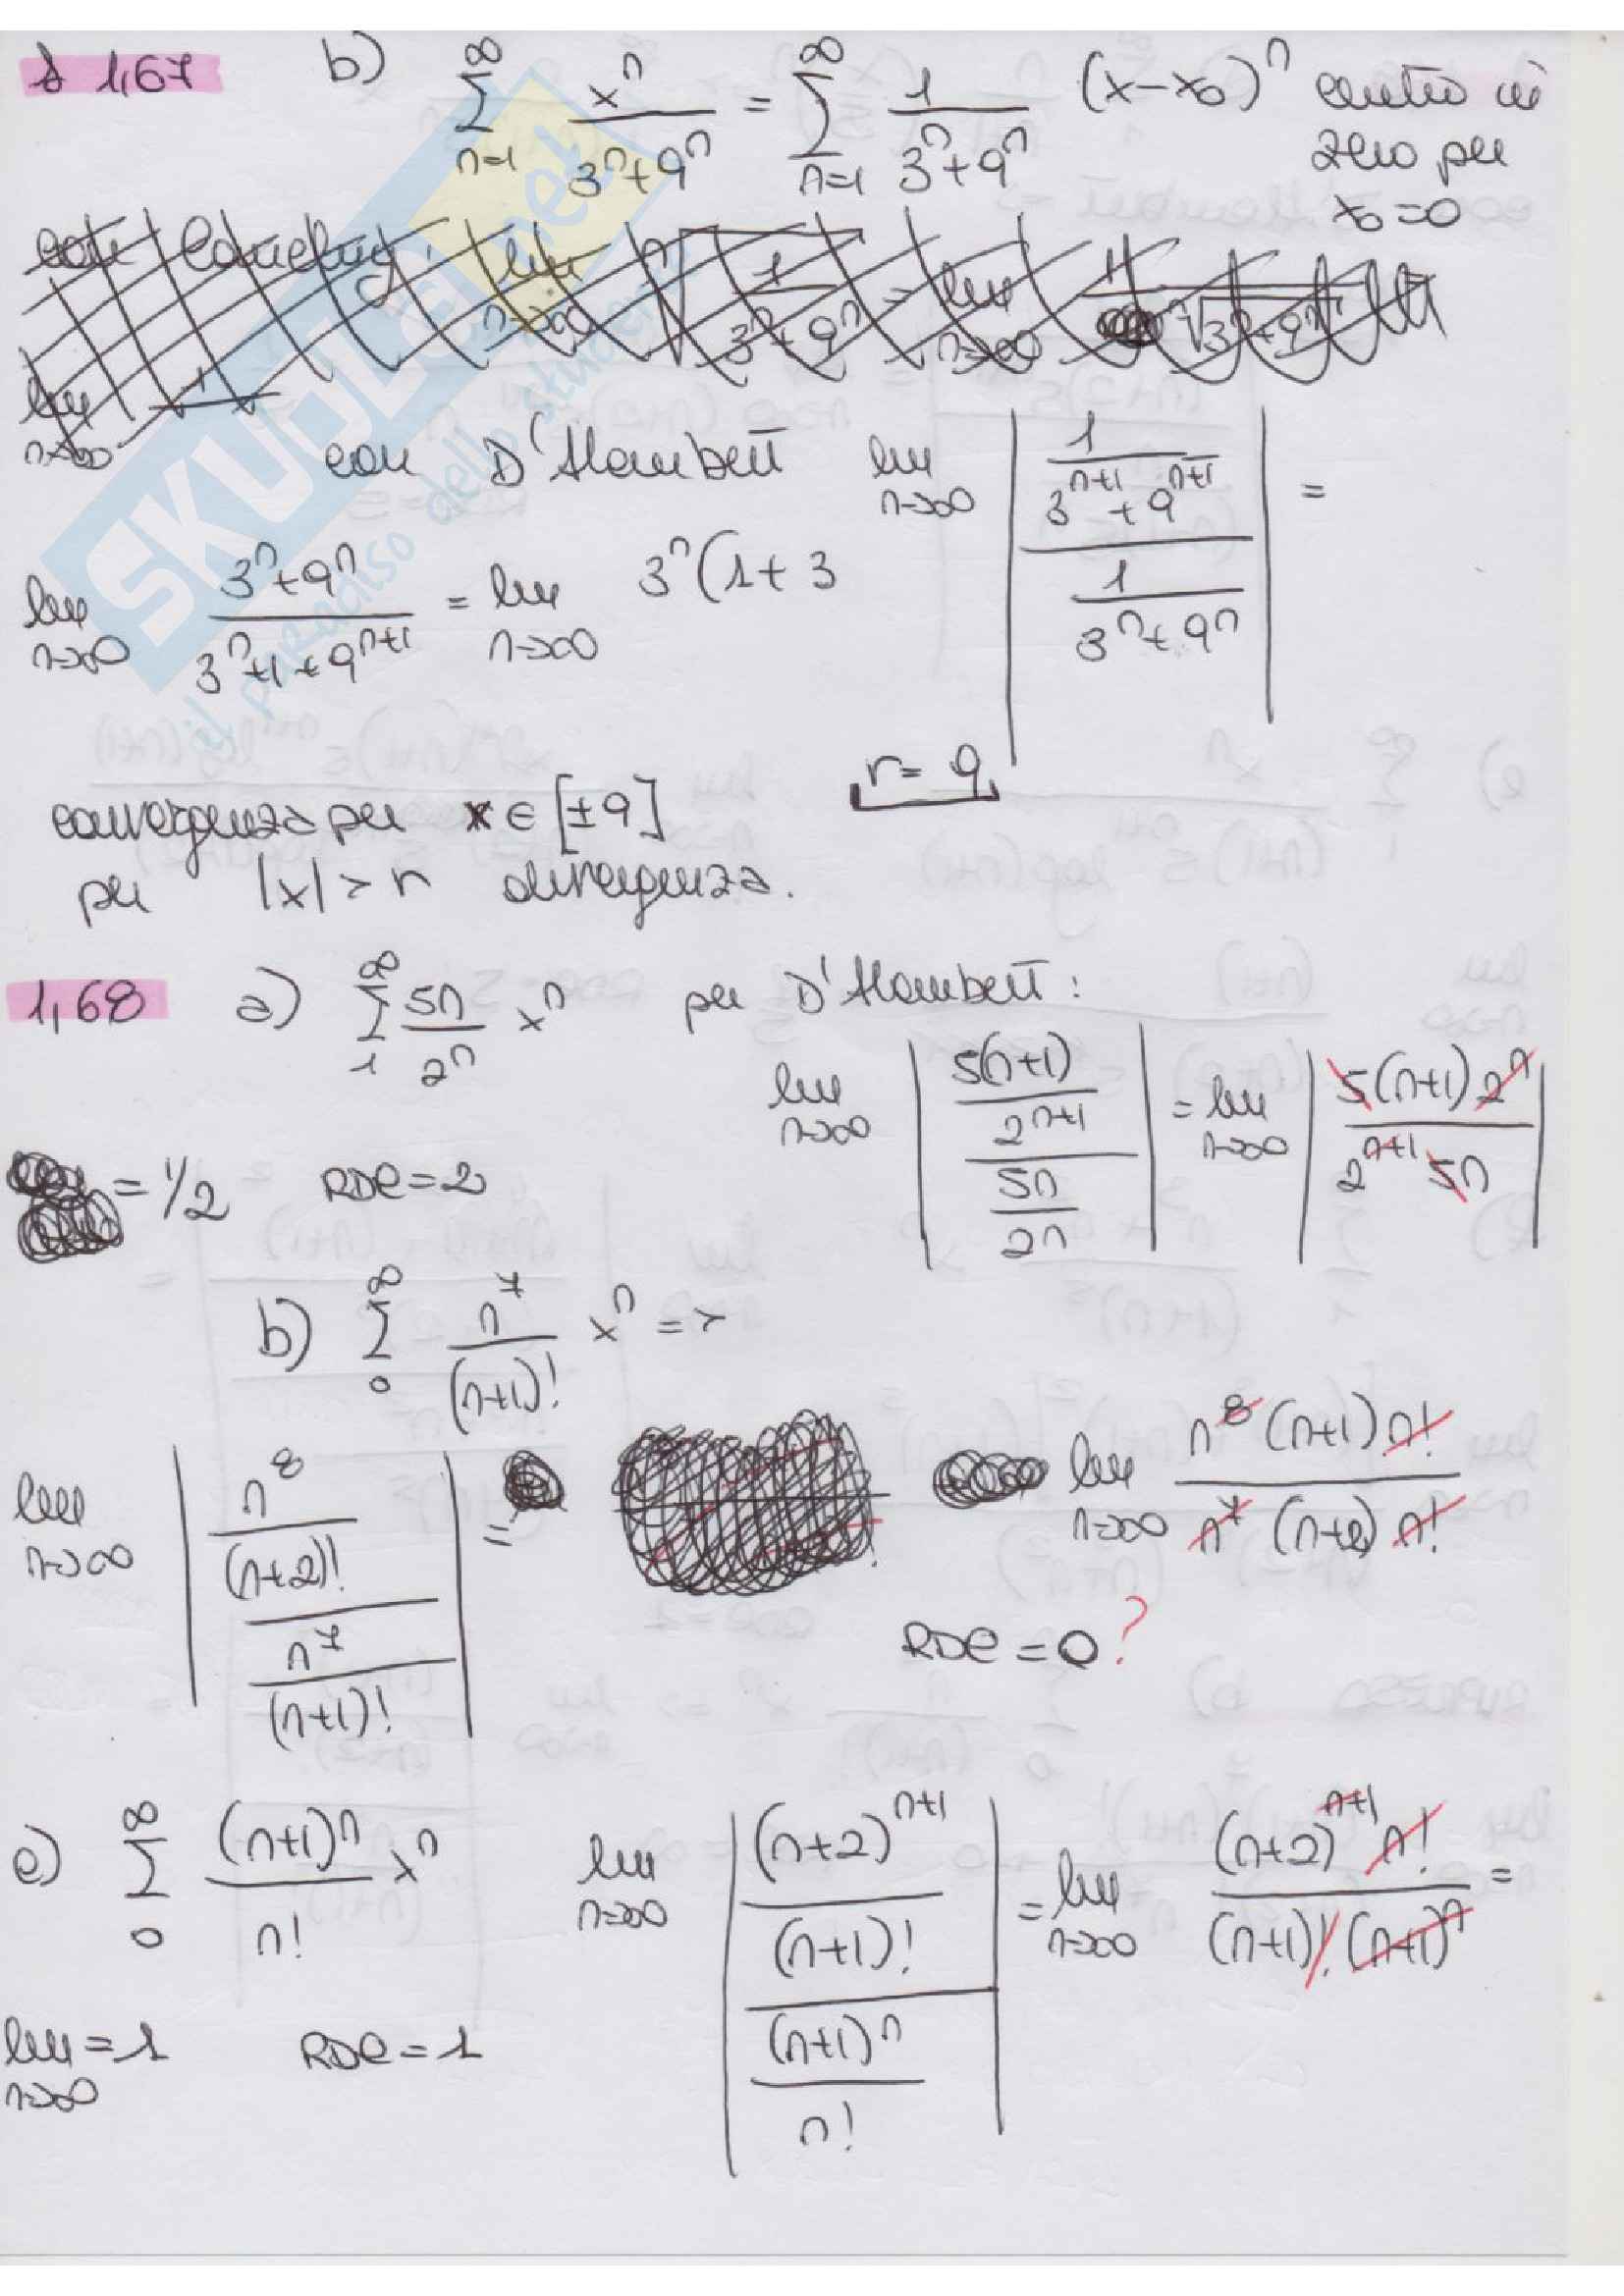 1,67 b) ∞ ∑ n=1 x^n / (3^n+9^n) = ∞ ∑ n=1 1 / (3^n+9^n) (x-x0)^n centro in
zero per
x0=0
con Cauchy: lim n→∞ n√(1 / (3^n+9^n)) = lim n→∞ 1 / n√(3^n+9^n)
lim n→∞ 1
con D'Alambert lim n→∞ | (1 / (3^(n+1)+9^(n+1))) / (1 / (3^n+9^n)) | =
lim n→∞ (3^n+9^n) / (3^n+1+9^(n+1)) = lim n→∞ 3^n(1+3
r=9
convergenza per x∈[±9]
per |x|>r divergenza.
1,68 a) ∞ ∑ 1 5n / 2^n x^n per D'Alambert:
lim n→∞ | (5(n+1) / 2^(n+1)) / (5n / 2n) | = lim n→∞ | 5(n+1)2^n / (2^(n+1) 5n) |
= 1/2 RDC=2
b) ∞ ∑ 0 n^7 / (n+1)! x^n =>
lim n→∞ | (n^8 / (n+2)!) / (n^7 / (n+1)!) | = lim n→∞ n^8 (n+1) n! / (n^7 (n+2) n!)
RDC=0?
c) ∞ ∑ 0 (n+1)^n / n! x^n lim n→∞ | ((n+2)^(n+1) / (n+1)!) / ((n+1)^n / n!) | = lim n→∞ (n+2)^(n+1) n! / ((n+1)! (n+1)^n) =
lim n→∞ = 1 RDC=1
SKUOLA.net
il paradiso dello studente